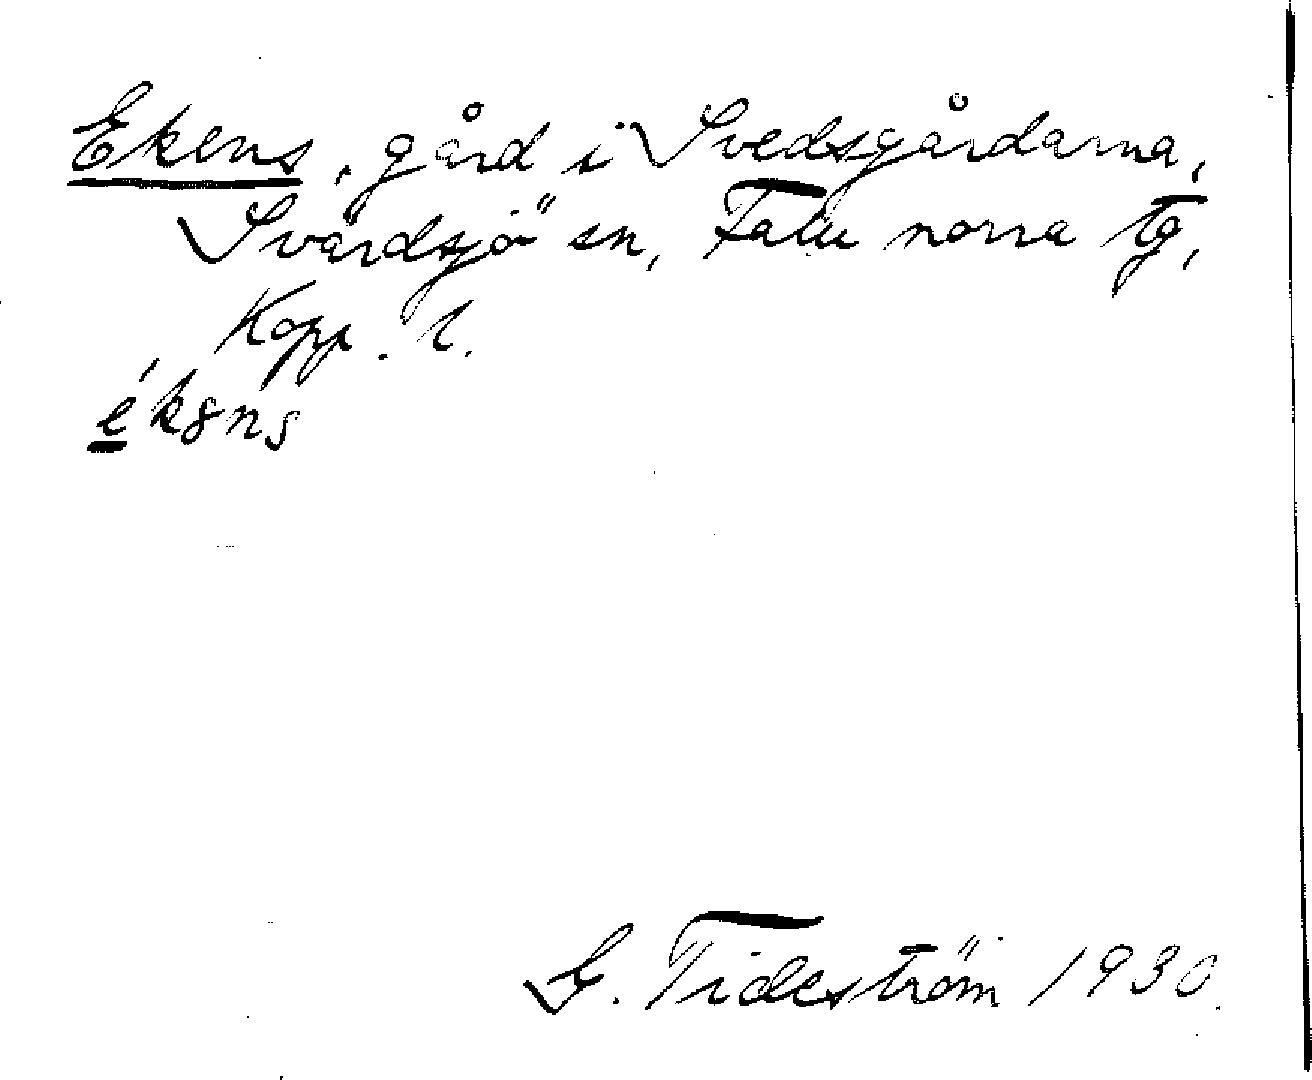 Ekens, gård i Svedsgårdarna,
Svärdsjö sn, Falu norra tg,
Kopp. l.
G. Tideström 1930.